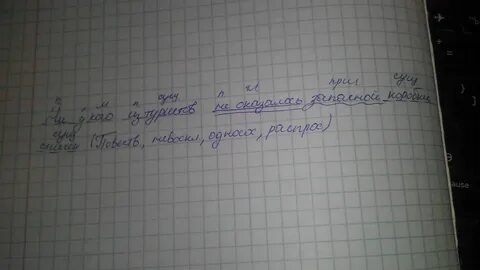 п м п сущ п гл прил сущ
Ни у кого из туристов не оказалось запасной коробки
сущ
спичек (Повеств, невоскл, односос, распрос)